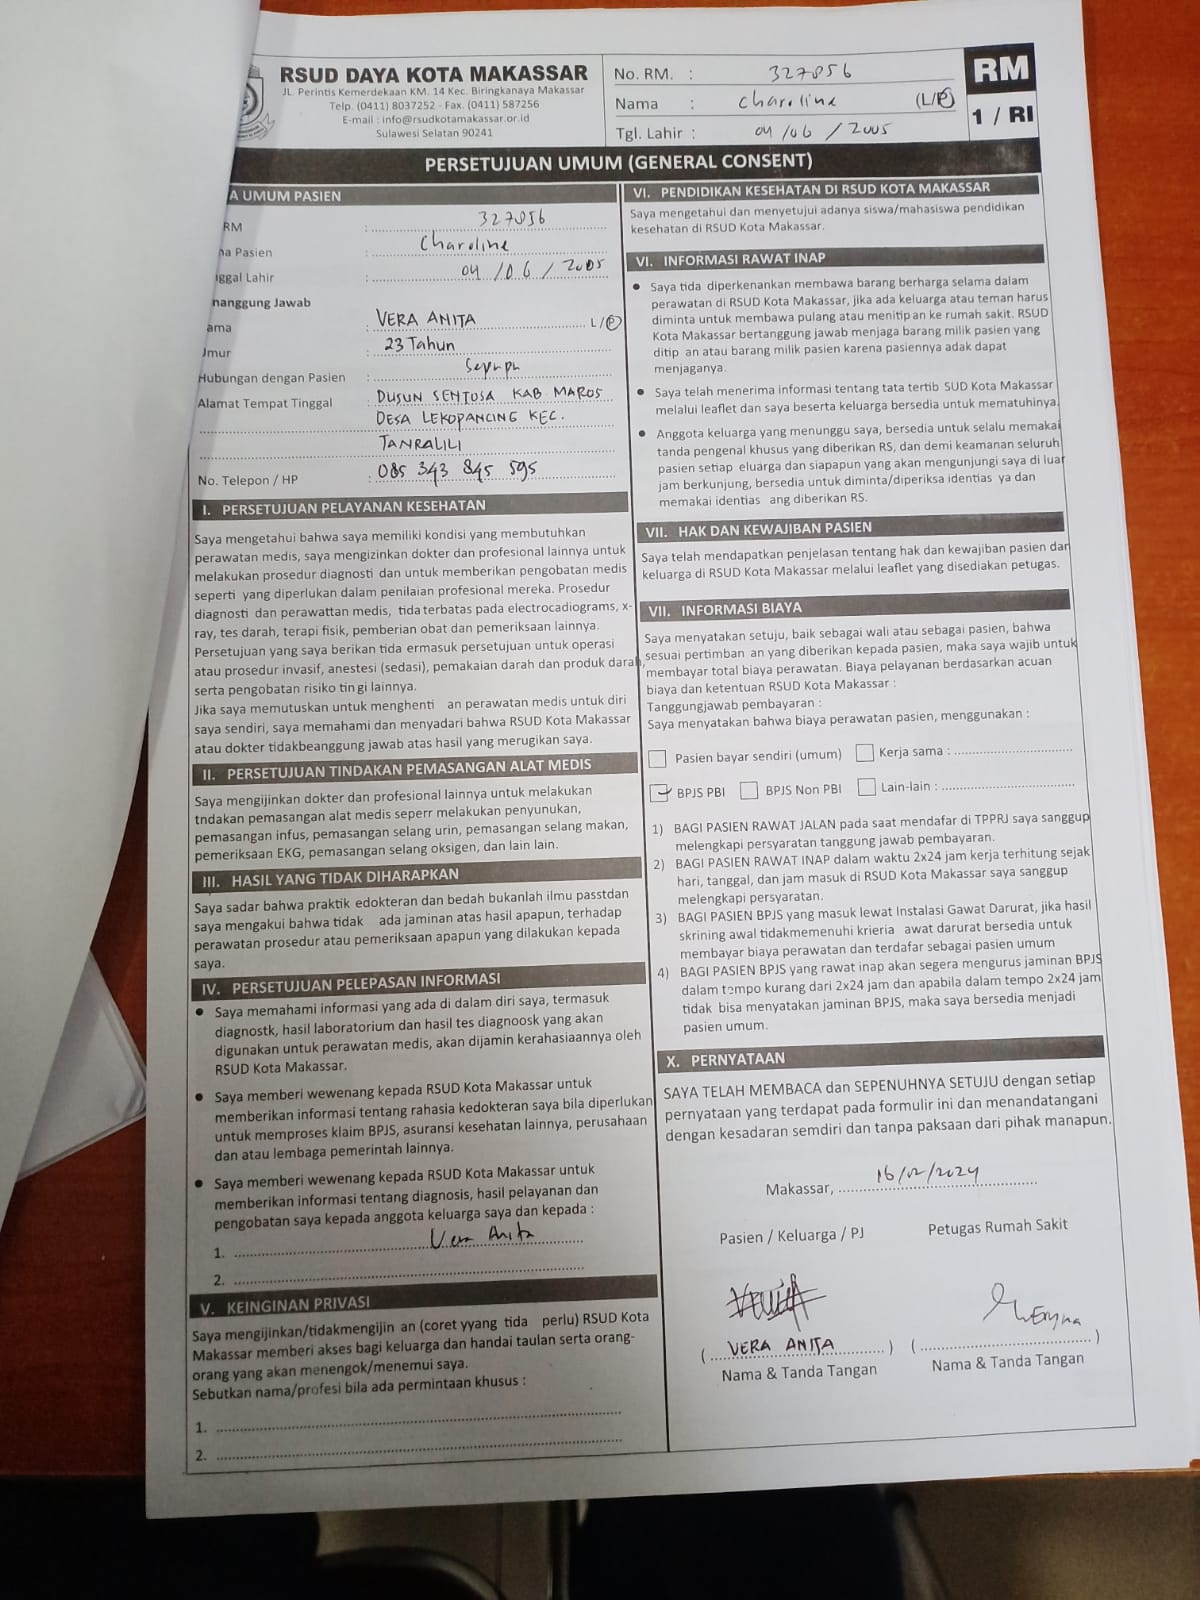 RSUD DAYA KOTA MAKASSAR
JL. Perintis Kemerdekaan KM. 14 Kec. Biringkanaya Makassar
Telp. (0411) 8037252 - Fax. (0411) 587256
E-mail : info@rsudkotamakassar.or.id
Sulawesi Selatan 90241
No. RM. : 327856
Nama : Charoline (L/P)
Tgl. Lahir : 04/06/2005
RM
1 / RI
PERSETUJUAN UMUM (GENERAL CONSENT)
A UMUM PASIEN
RM : 327856
na Pasien : Charoline
ggal Lahir : 04/06/2005
nanggung Jawab
ama : VERA ANITA L/P
Umur : 23 Tahun
Hubungan dengan Pasien : Sepupu
Alamat Tempat Tinggal : DUSUN SENTOSA KAB MAROS
DESA LEKOPANCING KEC.
TANRALILI
No. Telepon / HP : 085 343 845 595
I. PERSETUJUAN PELAYANAN KESEHATAN
Saya mengetahui bahwa saya memiliki kondisi yang membutuhkan
perawatan medis, saya mengizinkan dokter dan profesional lainnya untuk
melakukan prosedur diagnosti dan untuk memberikan pengobatan medis
seperti yang diperlukan dalam penilaian profesional mereka. Prosedur
diagnosti dan perawattan medis, tida terbatas pada electrocadiograms, x-
ray, tes darah, terapi fisik, pemberian obat dan pemeriksaan lainnya.
Persetujuan yang saya berikan tida ermasuk persetujuan untuk operasi
atau prosedur invasif, anestesi (sedasi), pemakaian darah dan produk darah,
serta pengobatan risiko tin gi lainnya.
Jika saya memutuskan untuk menghenti an perawatan medis untuk diri
saya sendiri, saya memahami dan menyadari bahwa RSUD Kota Makassar
atau dokter tidakbeanggung jawab atas hasil yang merugikan saya.
II. PERSETUJUAN TINDAKAN PEMASANGAN ALAT MEDIS
Saya mengijinkan dokter dan profesional lainnya untuk melakukan
tndakan pemasangan alat medis seperr melakukan penyunukan,
pemasangan infus, pemasangan selang urin, pemasangan selang makan,
pemeriksaan EKG, pemasangan selang oksigen, dan lain lain.
III. HASIL YANG TIDAK DIHARAPKAN
Saya sadar bahwa praktik edokteran dan bedah bukanlah ilmu passtdan
saya mengakui bahwa tidak ada jaminan atas hasil apapun, terhadap
perawatan prosedur atau pemeriksaan apapun yang dilakukan kepada
saya.
IV. PERSETUJUAN PELEPASAN INFORMASI
• Saya memahami informasi yang ada di dalam diri saya, termasuk
diagnostk, hasil laboratorium dan hasil tes diagnoosk yang akan
digunakan untuk perawatan medis, akan dijamin kerahasiaannya oleh
RSUD Kota Makassar.
• Saya memberi wewenang kepada RSUD Kota Makassar untuk
memberikan informasi tentang rahasia kedokteran saya bila diperlukan
untuk memproses klaim BPJS, asuransi kesehatan lainnya, perusahaan
dan atau lembaga pemerintah lainnya.
• Saya memberi wewenang kepada RSUD Kota Makassar untuk
memberikan informasi tentang diagnosis, hasil pelayanan dan
pengobatan saya kepada anggota keluarga saya dan kepada :
1. Vera Anita
2.
V. KEINGINAN PRIVASI
Saya mengijinkan/tidakmengijin an (coret yyang tida perlu) RSUD Kota
Makassar memberi akses bagi keluarga dan handai taulan serta orang-
orang yang akan menengok/menemui saya.
Sebutkan nama/profesi bila ada permintaan khusus :
1.
2.
VI. PENDIDIKAN KESEHATAN DI RSUD KOTA MAKASSAR
Saya mengetahui dan menyetujui adanya siswa/mahasiswa pendidikan
kesehatan di RSUD Kota Makassar.
VI. INFORMASI RAWAT INAP
• Saya tida diperkenankan membawa barang berharga selama dalam
perawatan di RSUD Kota Makassar, jika ada keluarga atau teman harus
diminta untuk membawa pulang atau menitip an ke rumah sakit. RSUD
Kota Makassar bertanggung jawab menjaga barang milik pasien yang
ditip an atau barang milik pasien karena pasiennya adak dapat
menjaganya.
• Saya telah menerima informasi tentang tata tertib SUD Kota Makassar
melalui leaflet dan saya beserta keluarga bersedia untuk mematuhinya
• Anggota keluarga yang menunggu saya, bersedia untuk selalu memakai
tanda pengenal khusus yang diberikan RS, dan demi keamanan seluruh
pasien setiap eluarga dan siapapun yang akan mengunjungi saya di luar
jam berkunjung, bersedia untuk diminta/diperiksa identias ya dan
memakai identias ang diberikan RS.
VII. HAK DAN KEWAJIBAN PASIEN
Saya telah mendapatkan penjelasan tentang hak dan kewajiban pasien dan
keluarga di RSUD Kota Makassar melalui leaflet yang disediakan petugas.
VII. INFORMASI BIAYA
Saya menyatakan setuju, baik sebagai wali atau sebagai pasien, bahwa
sesuai pertimban an yang diberikan kepada pasien, maka saya wajib untuk
membayar total biaya perawatan. Biaya pelayanan berdasarkan acuan
biaya dan ketentuan RSUD Kota Makassar :
Tanggungjawab pembayaran :
Saya menyatakan bahwa biaya perawatan pasien, menggunakan :
Pasien bayar sendiri (umum) Kerja sama :
BPJS PBI BPJS Non PBI Lain-lain :
1) BAGI PASIEN RAWAT JALAN pada saat mendafar di TPPRJ saya sanggup
melengkapi persyaratan tanggung jawab pembayaran.
2) BAGI PASIEN RAWAT INAP dalam waktu 2x24 jam kerja terhitung sejak
hari, tanggal, dan jam masuk di RSUD Kota Makassar saya sanggup
melengkapi persyaratan.
3) BAGI PASIEN BPJS yang masuk lewat Instalasi Gawat Darurat, jika hasil
skrining awal tidakmemenuhi krieria awat darurat bersedia untuk
membayar biaya perawatan dan terdafar sebagai pasien umum
4) BAGI PASIEN BPJS yang rawat inap akan segera mengurus jaminan BPJS
dalam tempo kurang dari 2x24 jam dan apabila dalam tempo 2x24 jam
tidak bisa menyatakan jaminan BPJS, maka saya bersedia menjadi
pasien umum.
X. PERNYATAAN
SAYA TELAH MEMBACA dan SEPENUHNYA SETUJU dengan setiap
pernyataan yang terdapat pada formulir ini dan menandatangani
dengan kesadaran semdiri dan tanpa paksaan dari pihak manapun.
Makassar, 16/02/2024
Pasien / Keluarga / PJ Petugas Rumah Sakit
( VERA ANITA ) ( )
Nama & Tanda Tangan Nama & Tanda Tangan